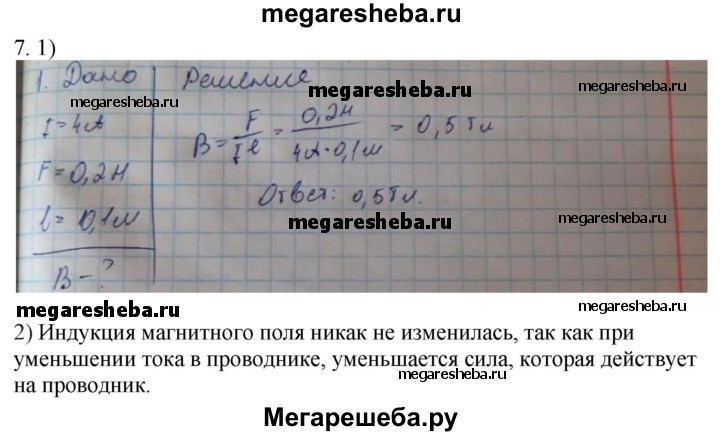 megaresheba.ru
7. 1)
1. Дано Решение
megaresheba.ru
megaresheba.ru
I = 4А
B = F/Iℓ = 0,2Н/4А·0,1м = 0,5 Тл
megaresheba.ru
F = 0,2Н
Ответ: 0,5Тл.
l = 0,1м
megaresheba.ru
megaresheba.ru
B - ?
megaresheba.ru
megaresheba.ru
2) Индукция магнитного поля никак не изменилась, так как при
уменьшении тока в проводнике, уменьшается сила, которая действует
на проводник.
megaresheba.ru
megaresheba.ru
Мегарешеба.ру